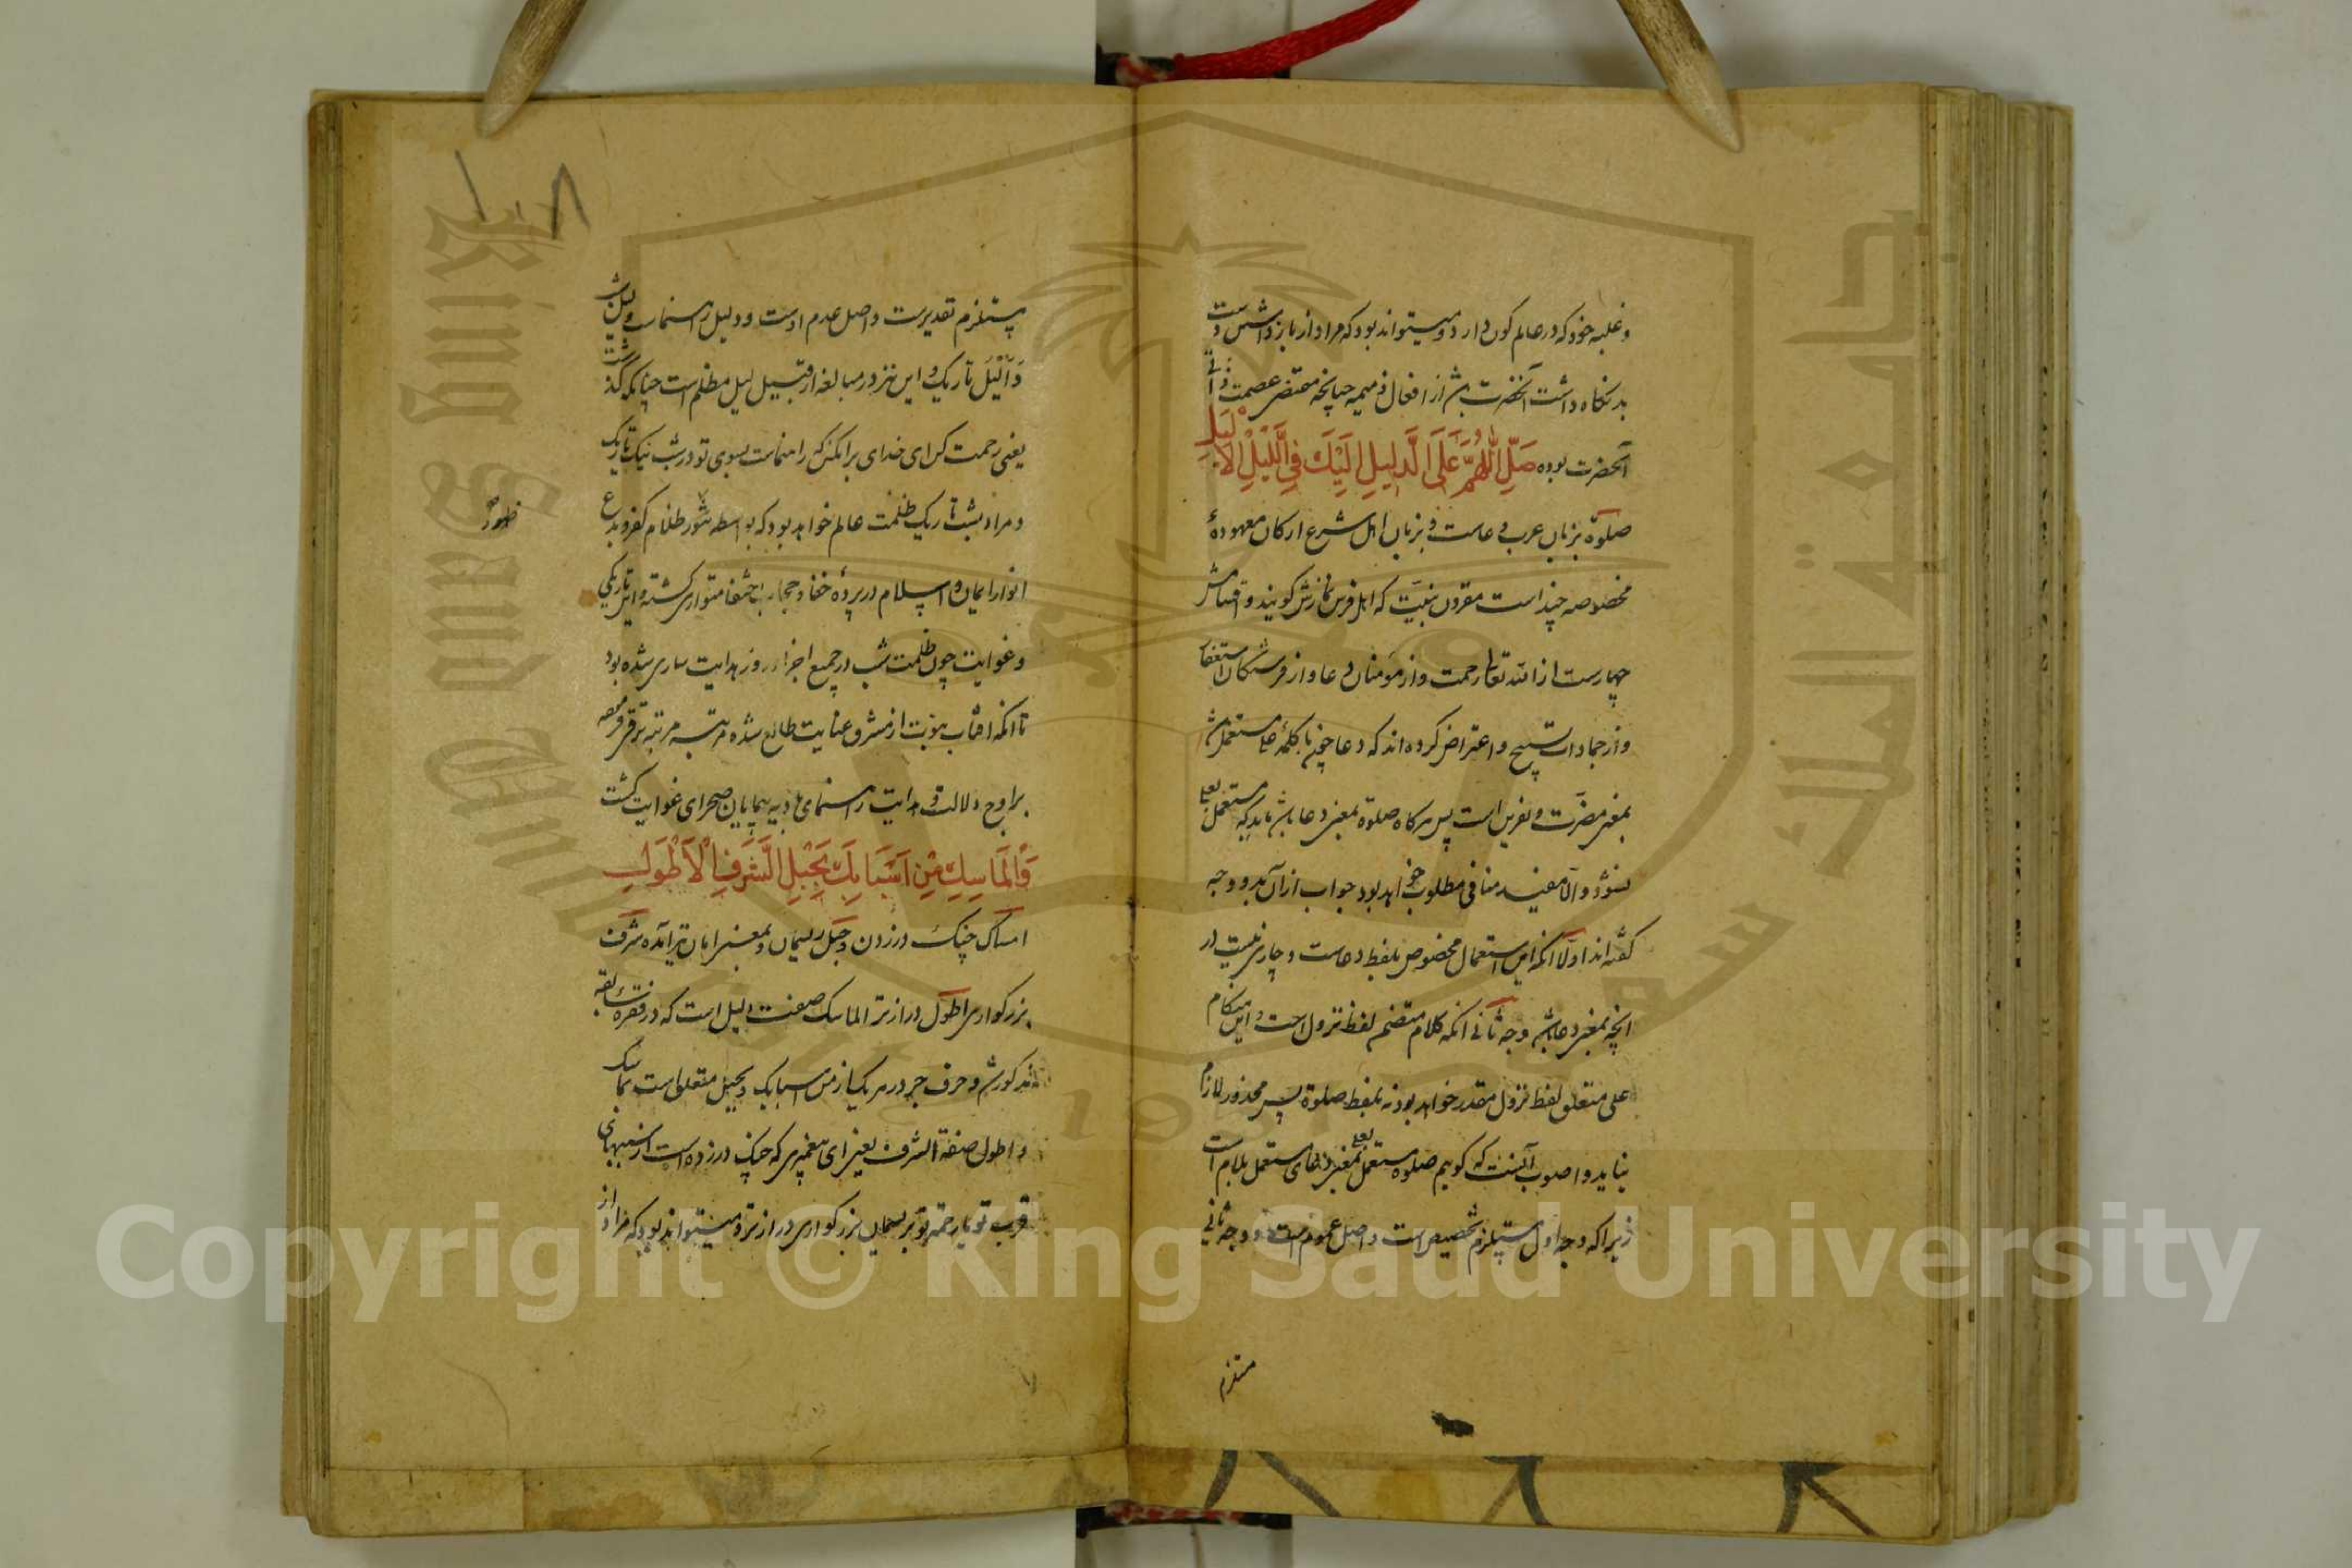 و غلبه خود که در عالم کون دارد و میتواند بود که مراد از باز داشتن دست
بد نکاه داشت آنحضرت باشد از افعال ذمیمه چنانچه مقتضی عصمت ذاتی
آنحضرت بوده صَلِّ اللّٰهُمَّ عَلَى الدَّلِيلِ اِلَيْكَ فِي اللَّيْلِ الْاَلْيَلِ
صلوة بزبان عرب دعاست و بزبان اهل شرع ارکان معهودهٔ
مخصوصه چند است مقرون بنیت که اهل فرس نمازش کویند و اقسامش
چهارست از الله تعالی رحمت و از مؤمنان دعا و از فرشتکان استغفار
و از جمادات تسبیح و اعتراض کرده اند که دعا چون با کلمهٔ علی مستعمل باشد
بمعنی مضرت و نفرین است پس هرکاه صلوة بمعنی دعا باشد باید که مستعمل بعلی
نشود و الا مفید منافی مطلوب خواهد بود جواب ازان بدو وجه
کفته اند اولا انکه این استعمال مخصوص بلفظ دعاست و جاری نیست در
انچه بمعنی دعا باشد وجه ثانی انکه کلام متضمن لفظ نزول است و این هنکام
علی متعلق لفظ نزول مقدر خواهد بود نه بلفظ صلوة پس محذور لازم
نیاید و اصوب آنست که کویم صلوة مستعمل بعلی بمعنی دعای مستعمل بلام است
زیرا که وجه اول مستلزم تخصیص است و اصل عموم است و وجه ثانی
مستلزم
۱۰۸
مستلزم تقدیرست و اصل عدم اوست و دلیل راهنماست و لیل شب
وَ اَلْيَل تاریک و این نیز در مبالغه از قبیل لیل مظلم است چنانکه گذشت
یعنی رحمت کن ای خدای بر انکس که راهنماست بسوی تو در شب نیک تاریک
و مراد بشب تاریک ظلمت عالم خواهد بود که بواسطه ظلام کفر و بدع
ظهور
انوار ایمان و اسلام در پردهٔ خفا و حجاب اختفا متواری کشته و این تاریکی
و غوایت چون ظلمت شب در جمیع اجزاء روز هدایت ساری شده بود
تا انکه افتاب نبوت از مشرق عنایت طالع شده مرتبه مرتبه ترقی فرموده
براوج دلالت و هدایت راهنمای بادیه پیمایان صحرای غوایت کشت
وَالْمَاسِكِ مِنْ اَسْبَابِكَ بِحَبْلِ الشَّرَفِ الْاَطْوَلِ
امساک چنک درزدن و حبل ریسمان و بمعنی امان نیز آمده شرف
بزرکواری اطول درازتر الماسک صفت دلیل است که در فقرهٔ سابقه
مذکور شد و حرف جر در هر یک از من اسبابک و بحبل متعلق است بماسک
و اطول صفة الشرف یعنی ای پیغمبری که چنک درزده است از سببهای
قرب تو یا رحمت تو بریسمان بزرکواری درازتر و میتواند بود که مراد از